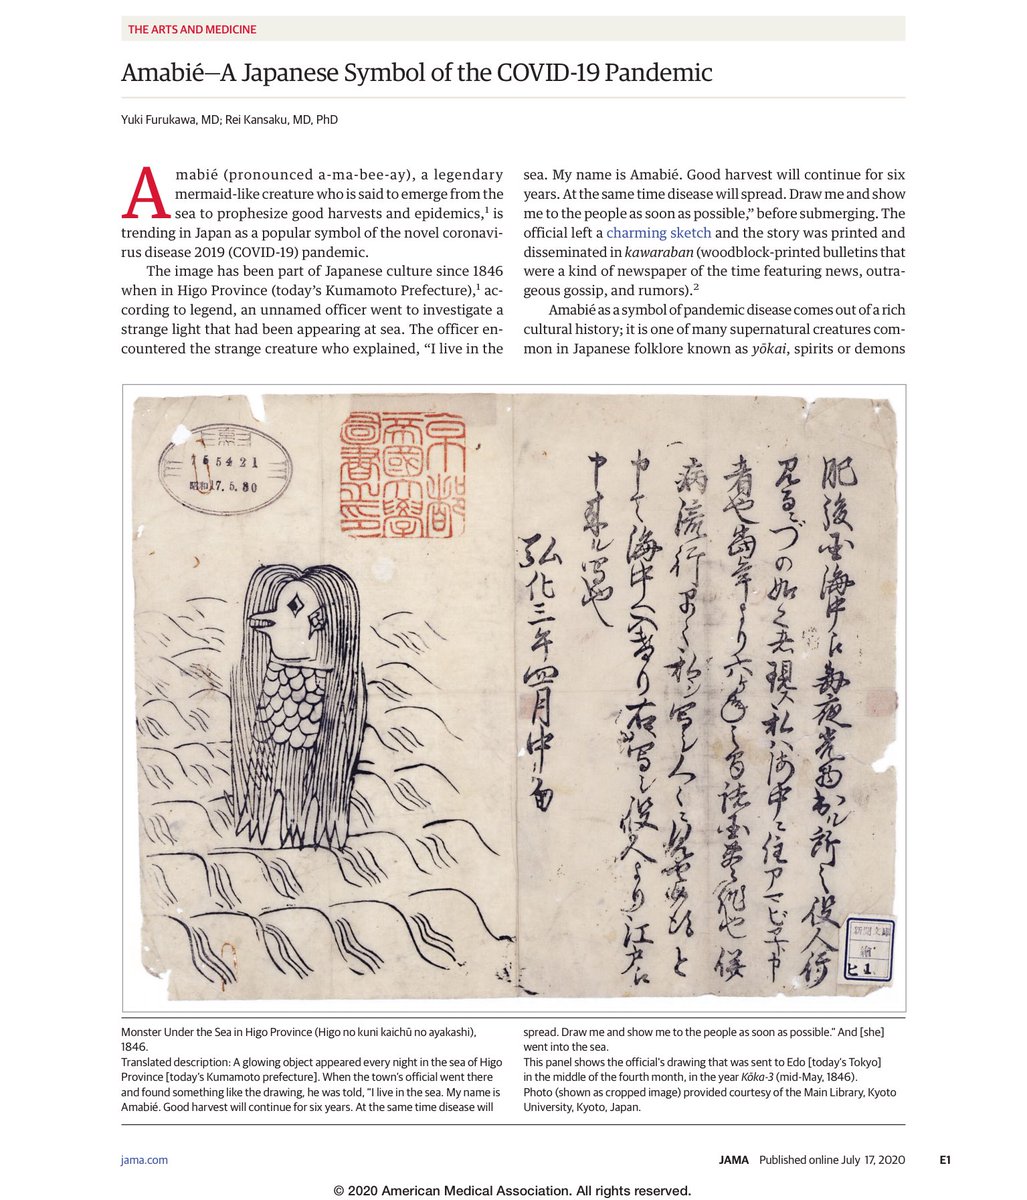 THE ARTS AND MEDICINE
Amabié—A Japanese Symbol of the COVID-19 Pandemic
Yuki Furukawa, MD; Rei Kansaku, MD, PhD
Amabié (pronounced a-ma-bee-ay), a legendary
mermaid-like creature who is said to emerge from the
sea to prophesize good harvests and epidemics,¹ is
trending in Japan as a popular symbol of the novel coronavi-
rus disease 2019 (COVID-19) pandemic.
The image has been part of Japanese culture since 1846
when in Higo Province (today’s Kumamoto Prefecture),¹ ac-
cording to legend, an unnamed officer went to investigate a
strange light that had been appearing at sea. The officer en-
countered the strange creature who explained, “I live in the
sea. My name is Amabié. Good harvest will continue for six
years. At the same time disease will spread. Draw me and show
me to the people as soon as possible,” before submerging. The
official left a charming sketch and the story was printed and
disseminated in kawaraban (woodblock-printed bulletins that
were a kind of newspaper of the time featuring news, outra-
geous gossip, and rumors).²
Amabié as a symbol of pandemic disease comes out of a rich
cultural history; it is one of many supernatural creatures com-
mon in Japanese folklore known as yōkai, spirits or demons
昭和17.5.30
京都
帝國大學
圖書之印
肥後国海中え毎夜光物出ル所之役人行
見るニづの如く者現ス私ハ海中ニ住アマビヱト申
者也當年より六ヶ年之間諸国豊作也併
病流行早々私ヲ写シ人々ニ見セ候得と
申て海中へ入けり右写シ役人より江戸え
申来ル写也
弘化三年四月中旬
新聞文庫
繪
ヒ1.
Monster Under the Sea in Higo Province (Higo no kuni kaichū no ayakashi),
1846.
Translated description: A glowing object appeared every night in the sea of Higo
Province [today’s Kumamoto prefecture]. When the town’s official went there
and found something like the drawing, he was told, “I live in the sea. My name is
Amabié. Good harvest will continue for six years. At the same time disease will
spread. Draw me and show me to the people as soon as possible.” And [she]
went into the sea.
This panel shows the official’s drawing that was sent to Edo [today’s Tokyo]
in the middle of the fourth month, in the year Kōka-3 (mid-May, 1846).
Photo (shown as cropped image) provided courtesy of the Main Library, Kyoto
University, Kyoto, Japan.
jama.com
JAMA Published online July 17, 2020 E1
© 2020 American Medical Association. All rights reserved.